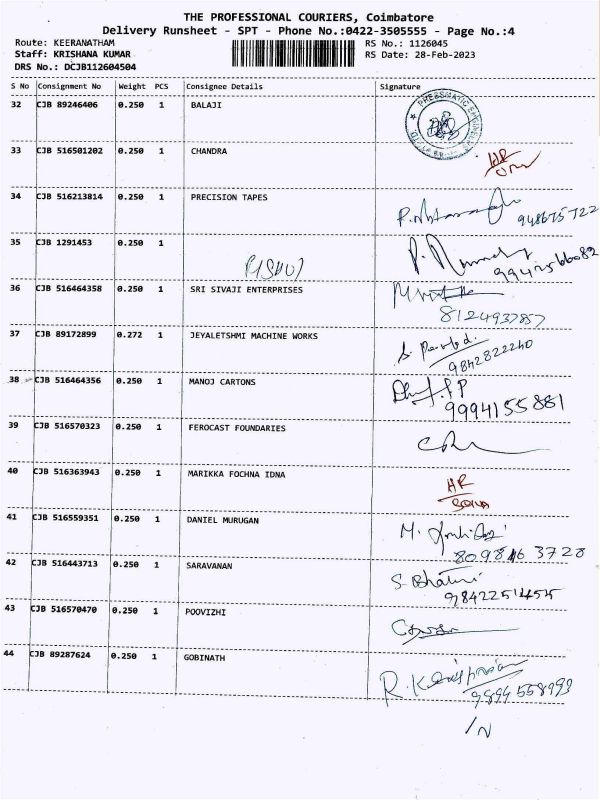 THE PROFESSIONAL COURIERS, Coimbatore
Delivery Runsheet - SPT - Phone No.:0422-3505555 - Page No.:4
Route: KEERANATHAM RS No.: 1126045
Staff: KRISHANA KUMAR RS Date: 28-Feb-2023
DRS No.: DCJB112604504
S No Consignment No Weight PCS Consignee Details Signature
32 CJB 89246406 0.250 1 BALAJI
33 CJB 516501202 0.250 1 CHANDRA
HR
34 CJB 516213814 0.250 1 PRECISION TAPES
35 CJB 1291453 0.250 1
36 CJB 516464358 0.250 1 SRI SIVAJI ENTERPRISES
8124937857
37 CJB 89172899 0.272 1 JEYALETSHMI MACHINE WORKS
9842822240
38 CJB 516464356 0.250 1 MANOJ CARTONS
9994155881
39 CJB 516570323 0.250 1 FEROCAST FOUNDARIES
40 CJB 516363943 0.250 1 MARIKKA FOCHNA IDNA
HR
41 CJB 516559351 0.250 1 DANIEL MURUGAN
8098463728
42 CJB 516443713 0.250 1 SARAVANAN
43 CJB 516570470 0.250 1 POOVIZHI
44 CJB 89287624 0.250 1 GOBINATH
9894558993